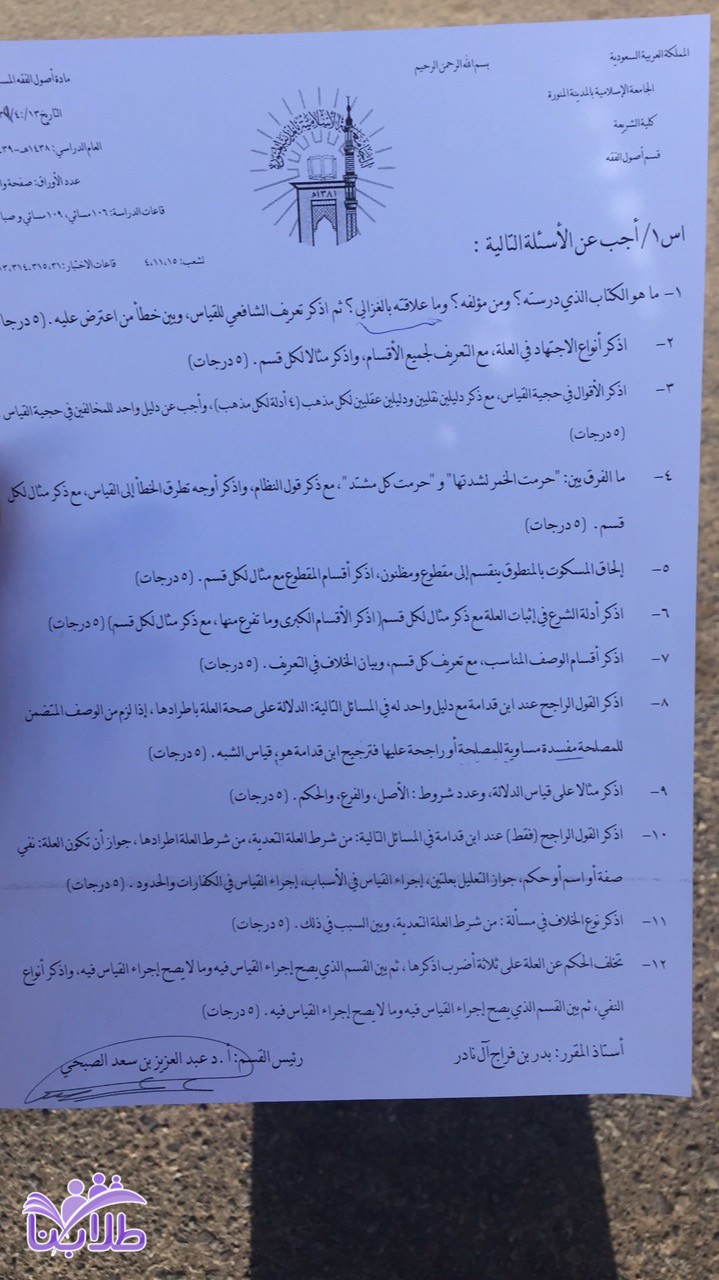 المملكة العربية السعودية
الجامعة الإسلامية بالمدينة المنورة
كلية الشريعة
قسم أصول الفقه
بسم الله الرحمن الرحيم
١٣٨١هـ
مادة أصول الفقه
التاريخ
العام الدراسي: ١٤٣٨هـ-
عدد الأوراق: صفحة
قاعات الدراسة: ١٠٦ مسائي، ١٠٩ مسائي و
لشعب: ٤،١١،١٥ قاعات الاختبار: ٣١٤،٣١٥،٣١
اس١/ أجب عن الأسئلة التالية :
١- ما هو الكتاب الذي درسته؟ ومن مؤلفه؟ وما علاقته بالغزالي؟ ثم اذكر تعريف الشافعي للقياس، وبين خطأ من اعترض عليه. (٥
٢- اذكر أنواع الاجتهاد في العلة، مع التعريف لجميع الأقسام، واذكر مثالا لكل قسم. (٥ درجات)
٣- اذكر الأقوال في حجية القياس، مع ذكر دليلين نقليين ودليلين عقليين لكل مذهب (٤ أدلة لكل مذهب)، وأجب عن دليل واحد للمخالفين في حجية القياس
(٥ درجات)
٤- ما الفرق بين: "حرمت الخمر لشدتها" و "حرمت كل مشتد"، مع ذكر قول النظام، واذكر أوجه تطرق الخطأ إلى القياس، مع ذكر مثال لكل
قسم. (٥ درجات)
٥- إلحاق المسكوت بالمنطوق ينقسم إلى مقطوع ومظنون، اذكر أقسام المقطوع مع مثال لكل قسم. (٥ درجات)
٦- اذكر أدلة الشرع في إثبات العلة مع ذكر مثال لكل قسم( اذكر الأقسام الكبرى وما تفرع منها، مع ذكر مثال لكل قسم) (٥ درجات)
٧- اذكر أقسام الوصف المناسب، مع تعريف كل قسم، وبيان الخلاف في التعريف. (٥ درجات)
٨- اذكر القول الراجح عند ابن قدامة مع دليل واحد له في المسائل التالية: الدلالة على صحة العلة باطرادها، إذا لزم من الوصف المتضمن
للمصلحة مفسدة مساوية للمصلحة أو راجحة عليها فترجيح ابن قدامة هو، قياس الشبه. (٥ درجات)
٩- اذكر مثالا على قياس الدلالة، وعدد شروط: الأصل، والفرع، والحكم. (٥ درجات)
١٠- اذكر القول الراجح (فقط) عند ابن قدامة في المسائل التالية: من شرط العلة التعدية، من شرط العلة اطرادها، جواز أن تكون العلة: نفي
صفة أو اسم أو حكم، جواز التعليل بعلتين، إجراء القياس في الأسباب، إجراء القياس في الكفارات والحدود. (٥ درجات)
١١- اذكر نوع الخلاف في مسألة: من شرط العلة التعدية، وبين السبب في ذلك. (٥ درجات)
١٢- تخلف الحكم عن العلة على ثلاثة أضرب اذكرها، ثم بين القسم الذي يصح إجراء القياس فيه وما لا يصح إجراء القياس فيه، واذكر أنواع
النفي، ثم بين القسم الذي يصح إجراء القياس فيه وما لا يصح إجراء القياس فيه. (٥ درجات)
أستاذ المقرر: بدر بن فراج آل نادر
رئيس القسم: أ.د عبد العزيز بن سعد الصبحي
طلابنا